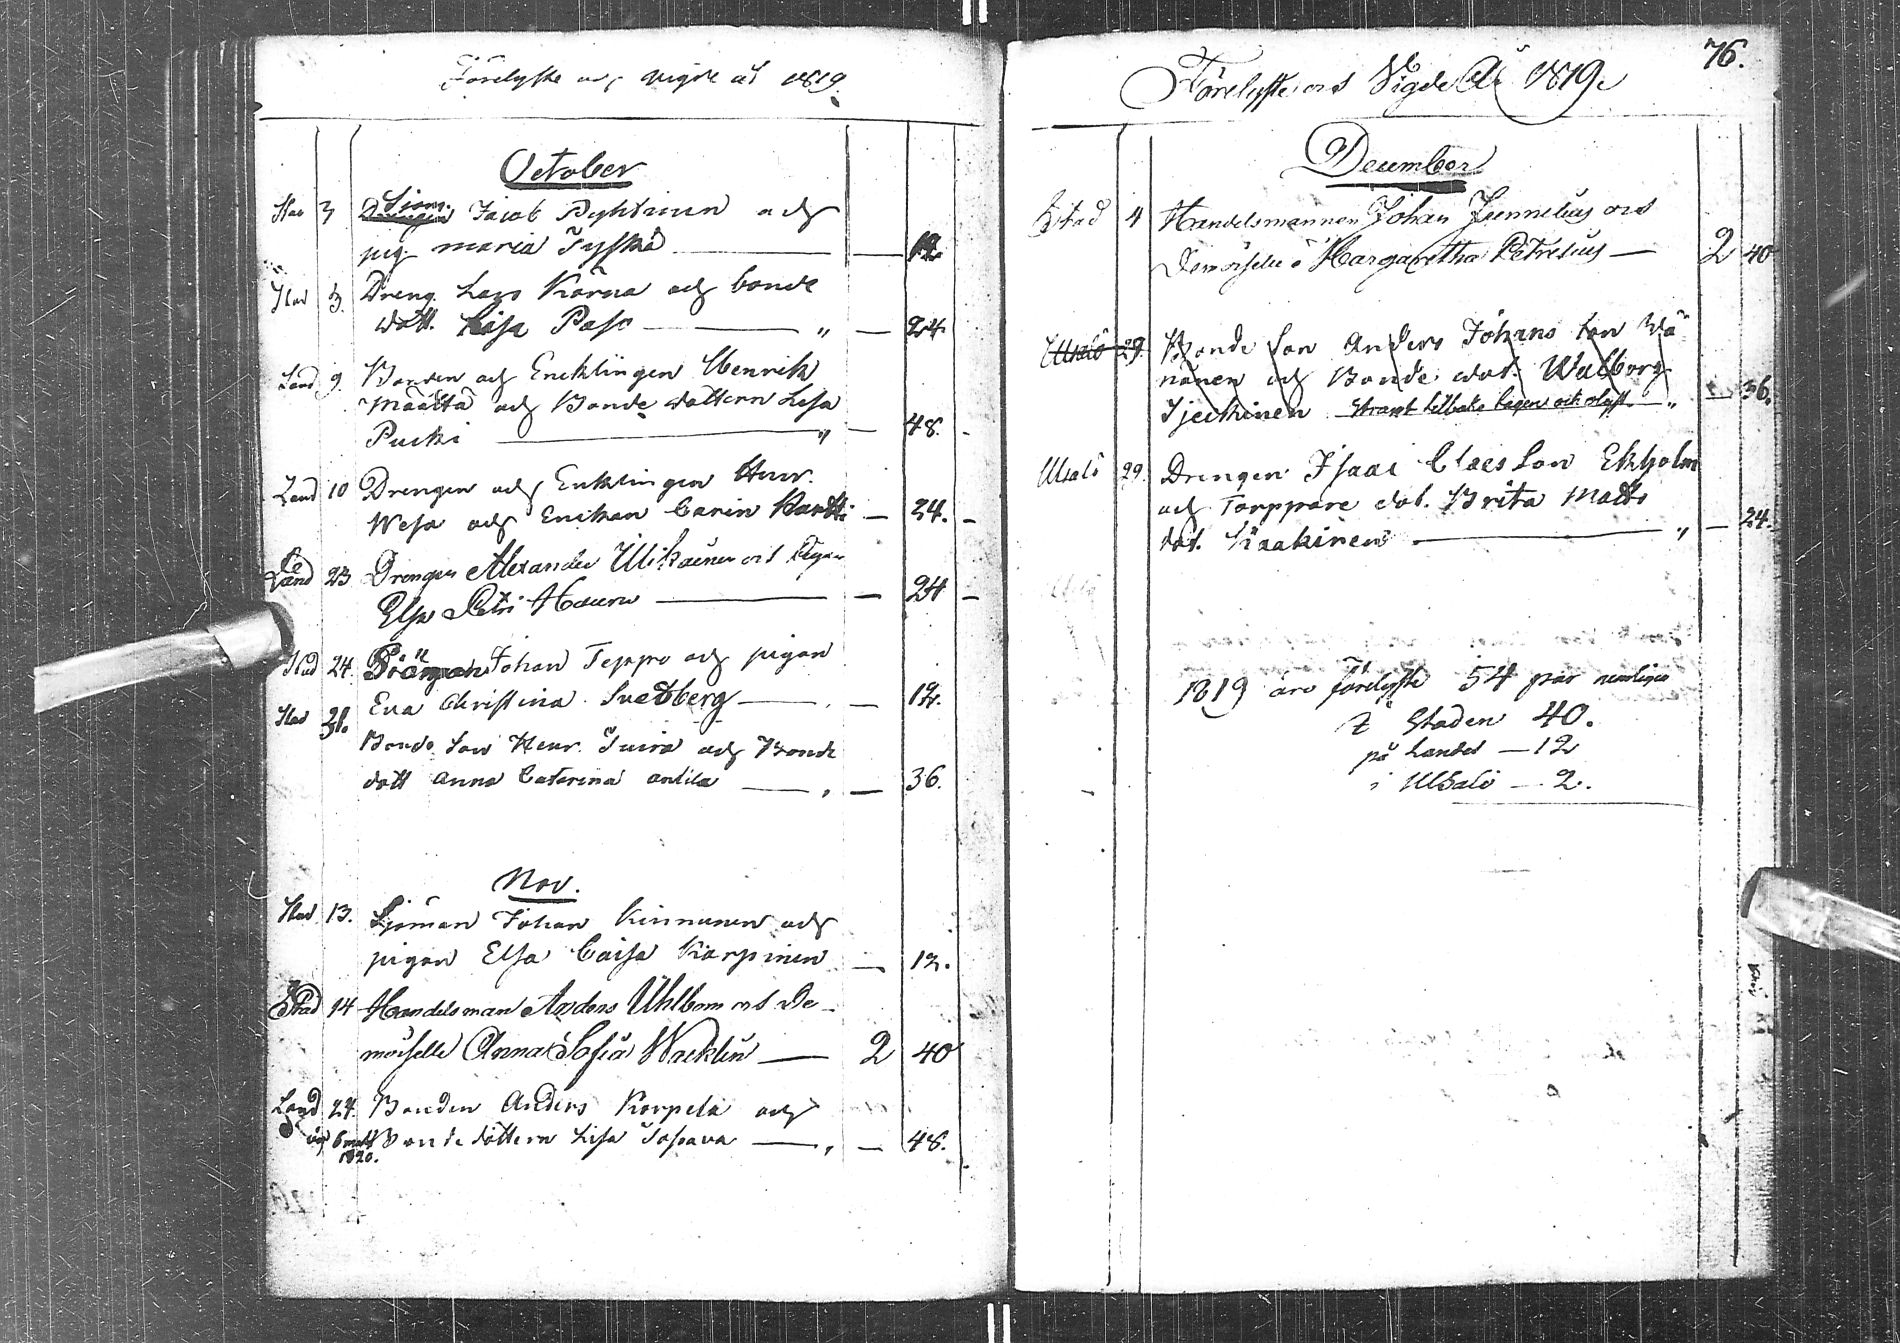 Förelyste och vigde åt 1819.
October
Stad 3 Sjöm. Jacob Pyhtinen och
pig maria Tyskä — — 12
Stad 3. Dreng. Lars Kärnä och bonde
dott. Lisa Paso — " — 24.
Land 9. Bonden och Encklingen Henrik
Määttä och Bonde dottern Lisa
Pucki — " — 48. -
Land 10 Drengen och Enklingen Henr.
Wesa och Enckan Carin — 24. -
Land 23 Drengen Alexander och Pigan
Elsa Petri — — 24 -
Stad 24. Johan Teppo och pigan
Eva Christina Svedberg — . — 12.
Stad 31.
Bonde Son Henr. Juira och Bonde
dott Anna Catarina Antila — , — 36.
Nov.
Stad 13. Sjöman Johan Kinnunen och
pigan Elsa Caisa Karpinen — 12.
Stad 14 Handelsman Anders Uhlbom och De-
moiselle Anna Sofia Wacklin — 2 40
Land 24. Bonden Anders Korpela och
vig 6 Bonde dottern Lisa — , — 48.
1820.
76.
Förelyste och Vigde År 1819.
December
Stad 4 Handelsmannen Johan Junnelius och
Demoiselle Margaretha Petrelius — 2 40
Ulealö 29. Bonde Son Anders Johans son Wä
nänen och Bonde dot. Walborg
tilbaka — " — 36.
Ulealö 29. Drengen Isaac Claes Son Ekholm
och Torppare dot. Brita Matts
dot. Kaakinen — " — 24.
1819 äro förelyste 54 par nemligen
i Staden 40.
på Landet — 12
i Ulealö — 2.